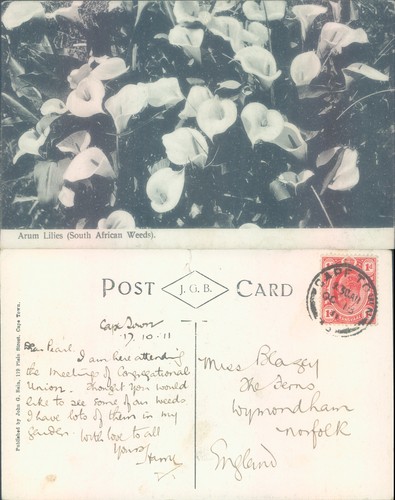 Arum Lilies (South African Weeds).
POST J. G. B. CARD
Published by John G. Bain, 115 Plein Street, Cape Town.
CAPE TOWN
Cape Town
17.10.11
Dear Pearl.
I am here attending
the Meetings of Congregational
Union. Thought you would
like to see some of our weeds
I have lots of them in my
garden.
With love to all
Yours
Miss Blazey
The Ferns
Wymondham
Norfolk
England